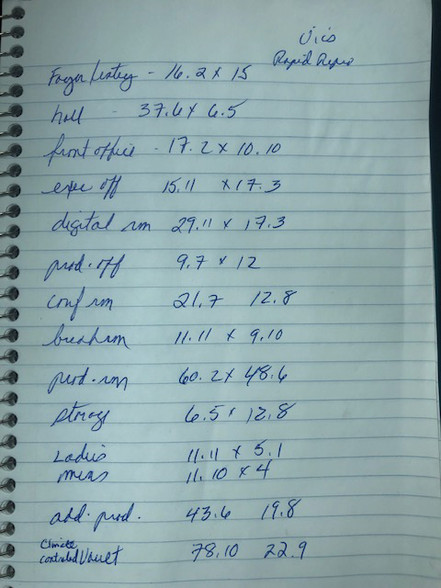 Vic's
Rapid Repro
Foyer/entry - 16.2 x 15
hall - 37.6 x 6.5
front office - 17.2 x 10.10
exec off 15.11 x 17.3
digital rm 29.11 x 17.3
prod. off 9.7 x 12
conf rm 21.7 12.8
breakrm 11.11 x 9.10
prod. rm 60.2 x 48.6
storage 6.5 x 12.8
Ladies 11.11 x 5.1
mens 11.10 x 4
add. prod. 43.6 19.8
Climate
controlled Vault 78.10 22.9